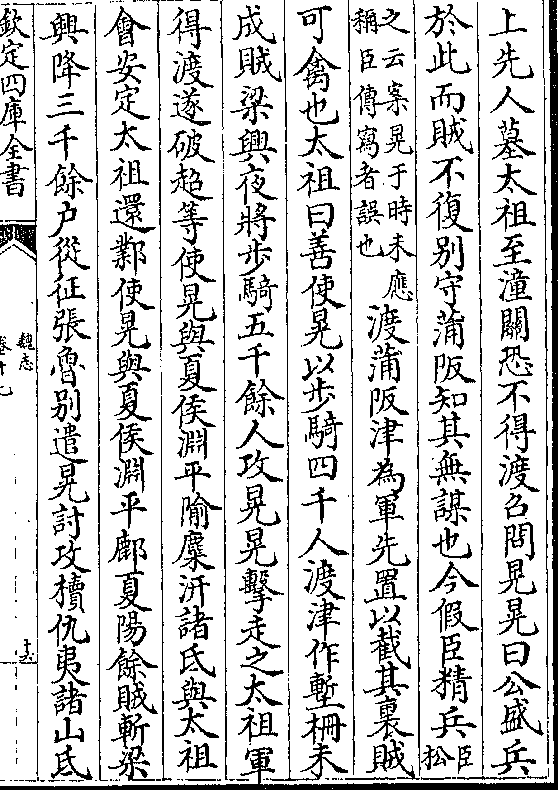 上先人墓太祖至潼關恐不得渡召問晃晃曰公盛兵
於此而賊不復别守蒲阪知其無謀也今假臣精兵臣松
之云案晃于時未應
稱臣傳寫者誤也
渡蒲阪津為軍先置以截其裏賊
可禽也太祖曰善使晃以步騎四千人渡津作塹柵未
成賊梁興夜將步騎五千餘人攻晃晃擊走之太祖軍
得渡遂破超等使晃與夏侯淵平隃麋汧諸氐與太祖
會安定太祖還鄴使晃與夏侯淵平鄜夏陽餘賊斬梁
興降三千餘户從征張魯别遣晃討攻櫝仇夷諸山氐
欽定四庫全書
魏志
卷十七
十六